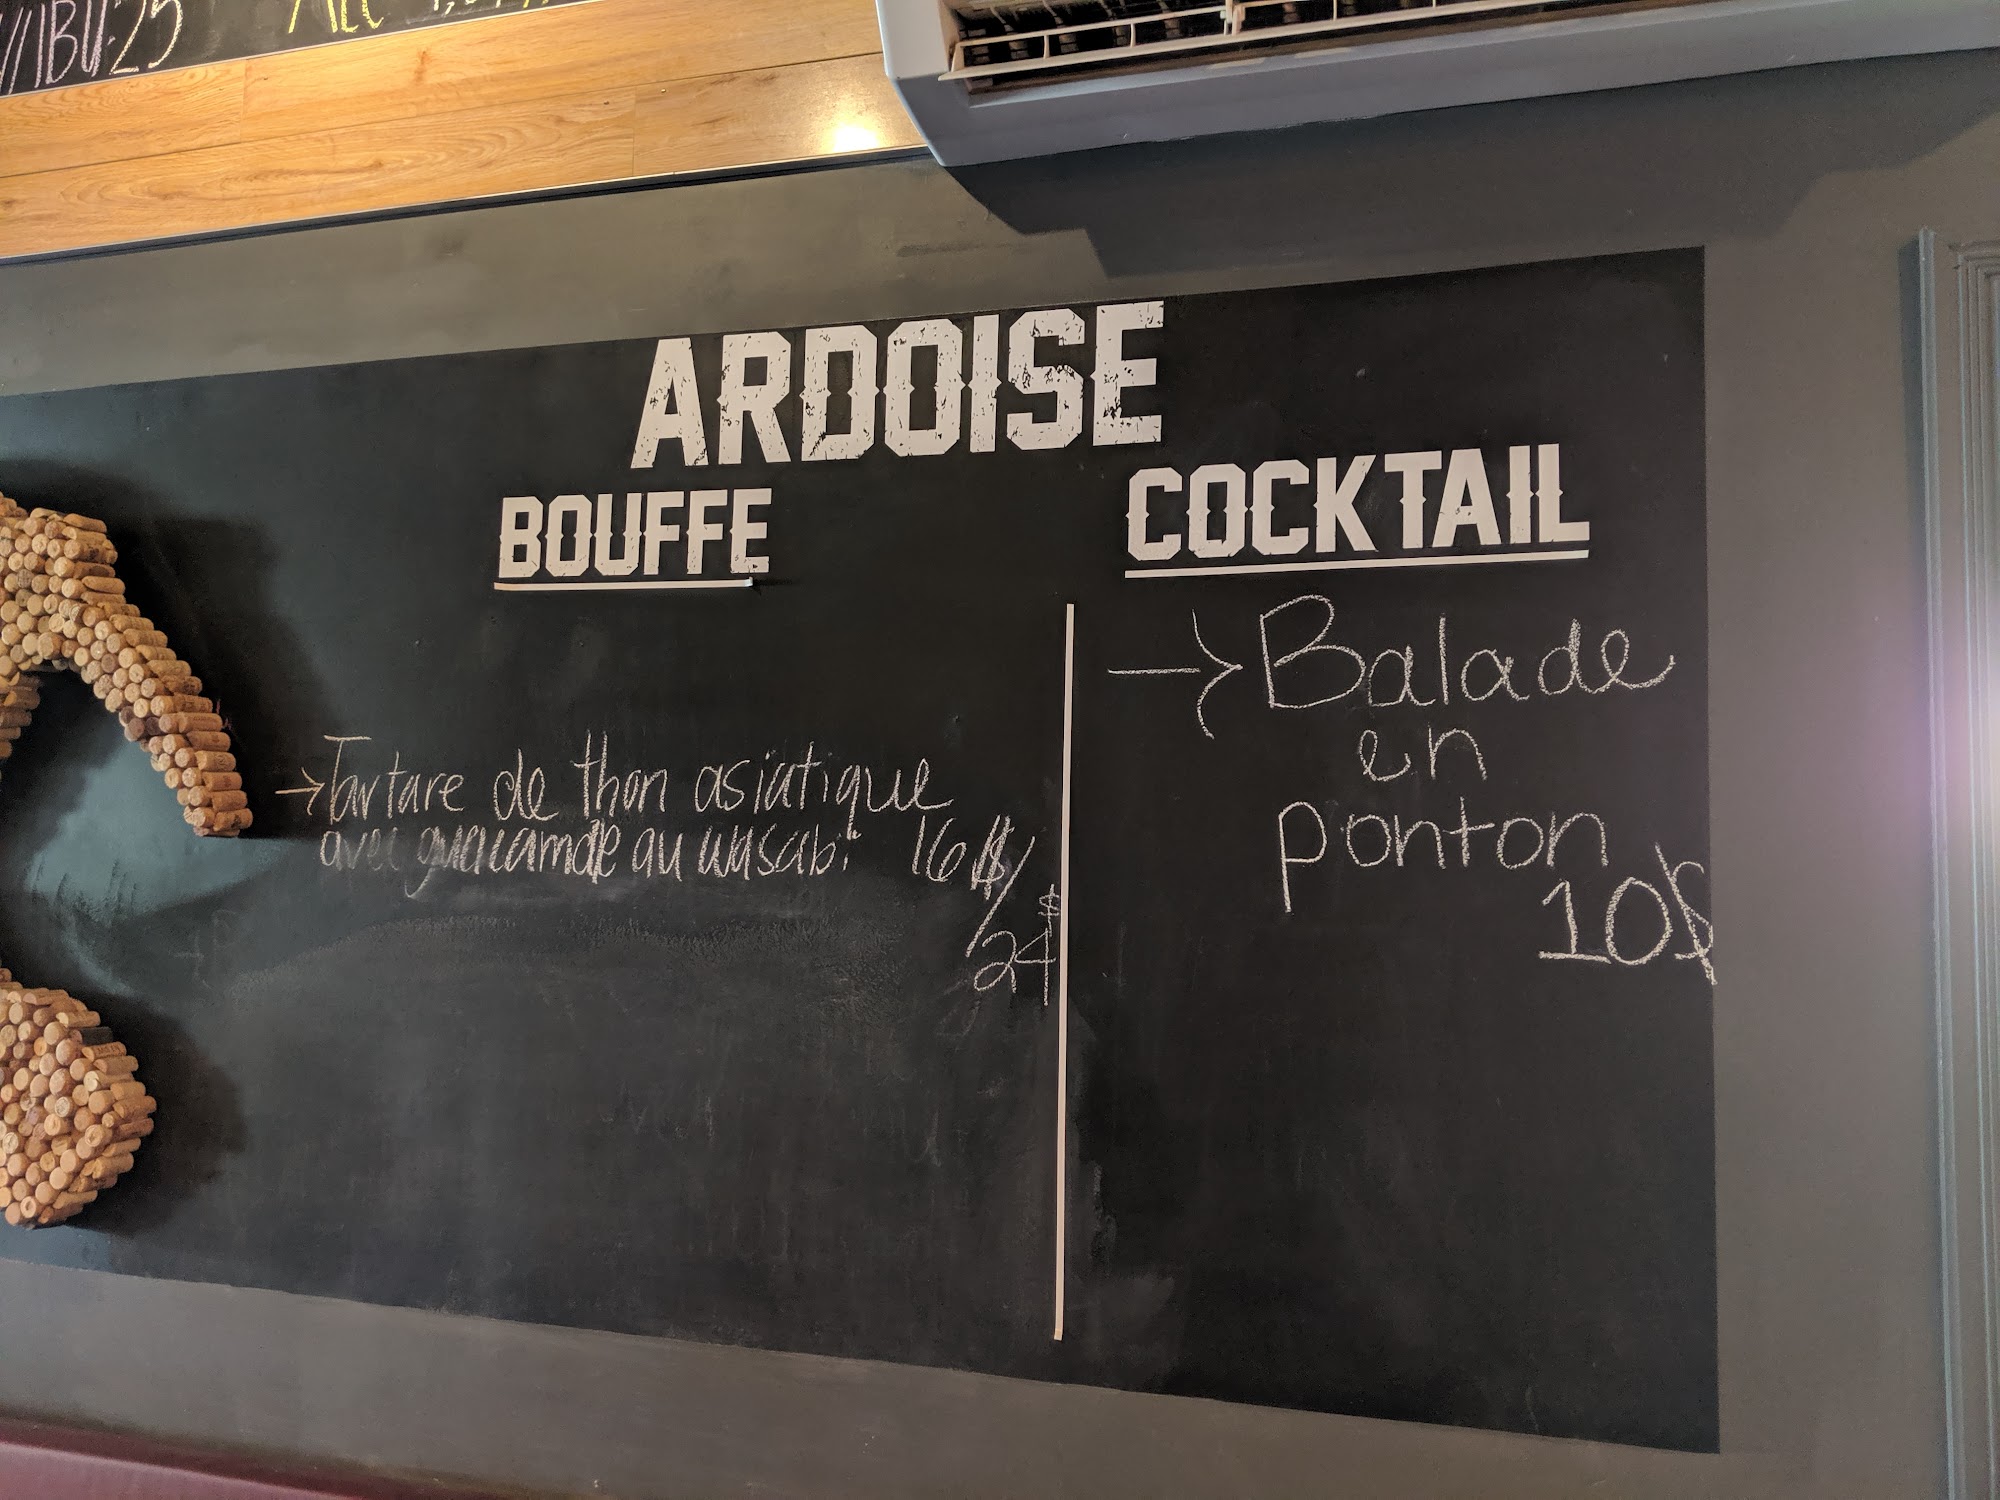 //IBU:25
ARDOISE
BOUFFE
COCKTAIL
→Tartare de thon asiatique
avec guacamole au wasabi 16$/
24$
→Balade
en
ponton
10$